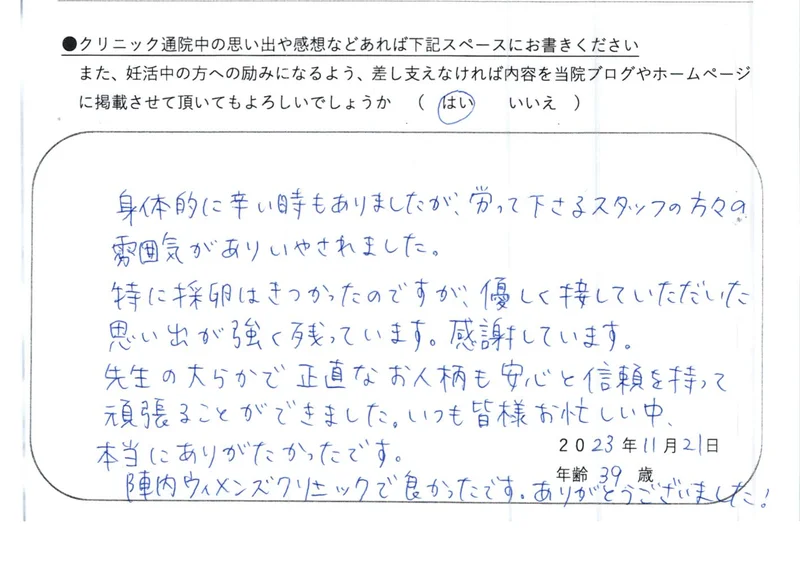 ●クリニック通院中の思い出や感想などあれば下記スペースにお書きください
また、妊活中の方への励みになるよう、差し支えなければ内容を当院ブログやホームページ
に掲載させて頂いてもよろしいでしょうか （ はい いいえ ）
身体的に辛い時もありましたが、労って下さるスタッフの方々の
雰囲気がありいやされました。
特に採卵はきつかったのですが、優しく接していただいた
思い出が強く残っています。感謝しています。
先生の大らかで正直なお人柄も安心と信頼を持って
頑張ることができました。いつも皆様お忙しい中、
本当にありがたかったです。
2023年11月21日
年齢 39 歳
陣内ウィメンズクリニックで良かったです。ありがとうございました！